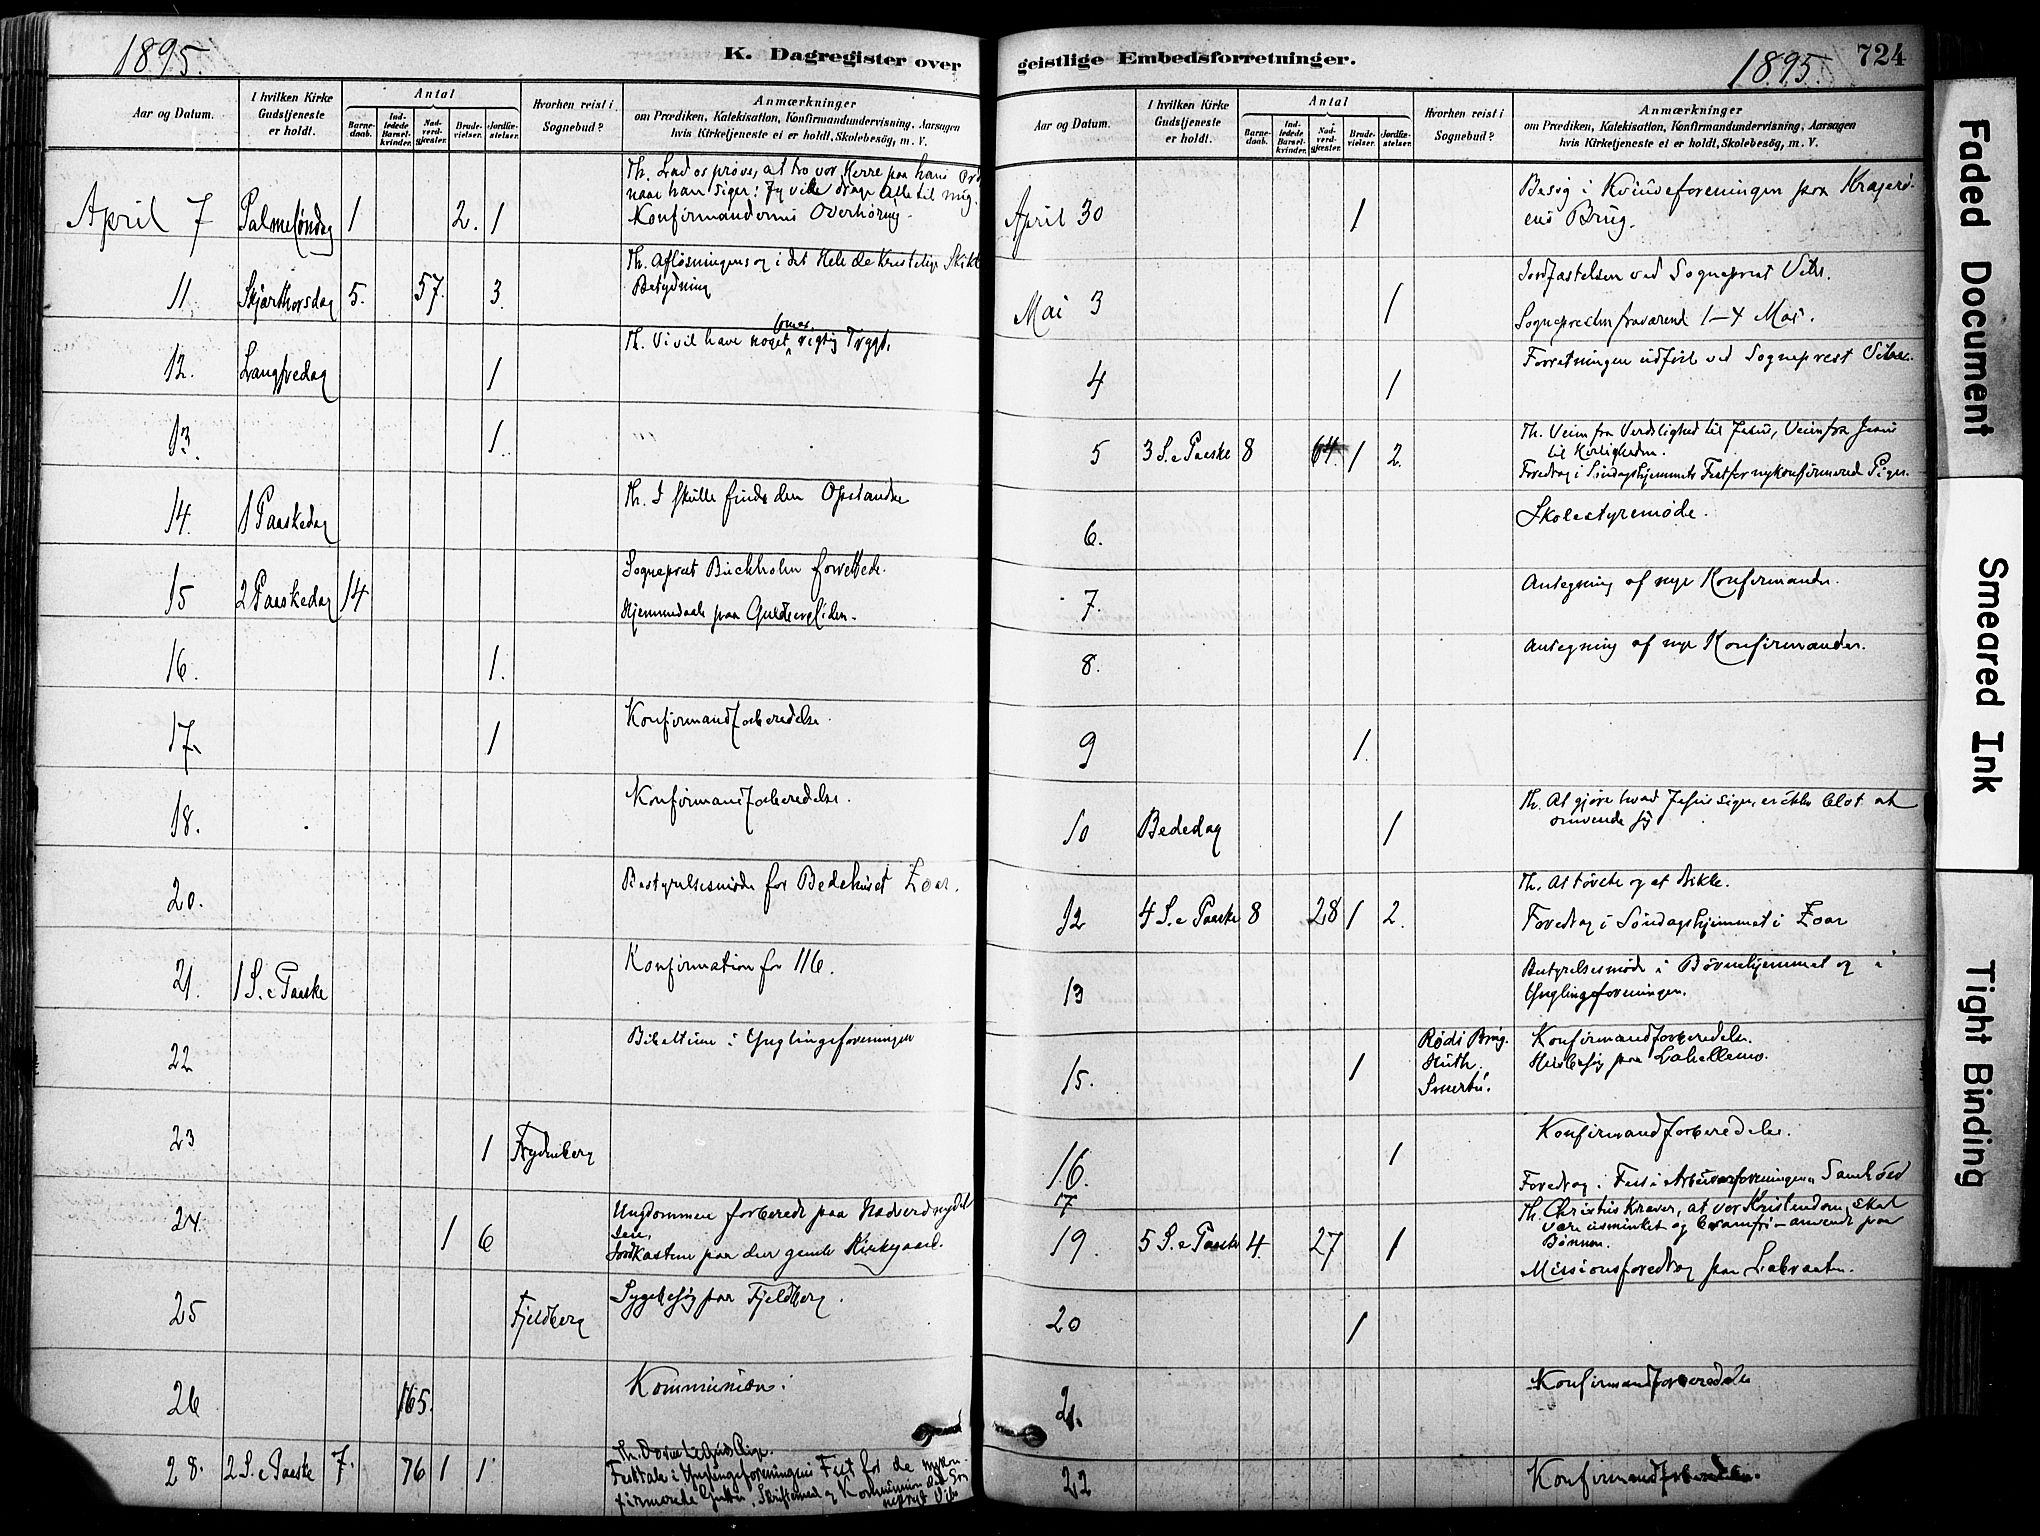 1895.
K. Dagregister over
Aar og Datum.
I hvilken Kirke Gudstjeneste er holdt.
Antal
Barnedaab.
Indledede Barselkvinder.
Nadverdgjester.
Brudevielser.
Jordfæstelser.
Hvorhen reist i Sognebud?
Anmærkninger
om Prædiken, Katekisation, Konfirmandundervisning, Aarsagen
hvis Kirketjeneste ei er holdt, Skolebesög, m. V.
April 7 Palmesöndag 1 2. 1
Th. Lad os prøve, at tro vor Herre paa hans Ord
naar han siger: Jeg vil drage Alle til mig.
Konfirmandernes Overhøring.
11 Skjærthorsdag 5. 57. 3.
Th. Afløsningens og i det Hele de Kristelige
Betydning
12. Langfredag 1
Th. Vi vil have noget rigtig Trygt.
13. 1
14. 1 Paaskedag
Th. I skulle finde den Opstandne
15 2 Paaskedag 14
Sogneprest Buckholm forrettede.
Hjemmedaab paa
16. 1.
17. 1
Konfirmandforberedelse.
18.
Konfirmandforberedelse.
20.
Bestyrelsesmøde for Bedehuset Zoar.
21. 1 S. e Paaske
Konfirmation for 116.
22
Bibeltime i Ynglingeforeningen
23 1 Frydenberg
24. 1 6
Ungdommen forberedt paa Nadverdnydel
sen.
Jordkastene paa den gamle Kirkegaard.
25 Fjeldberg
Sygebesög paa Fjeldberg.
26 165.
Kommunion.
28. 2 S. e Paaske 7. 76 1 1
Th.
Festtale i Ynglingeforeningens Fest for de nykon-
firmerede Gutter. Skriftemaal og Kommunion
geistlige Embedsforretninger.
1895.
724
Aar og Datum.
I hvilken Kirke Gudstjeneste er holdt.
Antal
Barnedaab.
Indledede Barselkvinder.
Nadverdgjester.
Brudevielser.
Jordfæstelser.
Hvorhen reist i Sognebud?
Anmærkninger
om Prædiken, Katekisation, Konfirmandundervisning, Aarsagen
hvis Kirketjeneste ei er holdt, Skolebesög, m. V.
April 30 1
Besøg i Kvindeforeningen paa Kragerø-
ens Brug.
Mai 3 1
Jordfæstelsen ved Sogneprest
Sognepresten fraværend 1-4 Mai.
4 1
Forretningen udført ved Sogneprest
5 3 S. e Paaske 8 64. 1 2.
Th. Veien fra Verdslighed til Jesus, Veien fra Jesus
til Kjerligheden.
Foredrag i Söndagshjemmets Fest for nykonfirmered Piger.
6.
Skolestyremøde.
7.
Antegning af nye Konfirmander.
8.
Antegning af nye Konfirmander.
9 1.
10 Bededag 1
Th. At gjøre hvad Jesus siger, er ikke blot at
omvende sig
12 4 S. e Paaske 8 28 1 2.
Th. At tørste og at drikke.
Foredrag i Söndagshjemmet i Zoar
13
Bestyrelsesmøde i Börnehjemmet og i
Ynglingeforeningen.
15. 1
Rødi Brug.
Konfirmandforberedelse.
16. 1
Konfirmandforberedelse.
Foredrag i Fest i Arbeiderforeningen Samhold
17
19. 5 S. e Paaske 4. 27 1
Th. Christus kræver, at vor Kristendom skal
være usminket og
Bönnen.
Missionsforedrag paa Labraaten.
20 1
21.
Konfirmandforberedelse
22
Konfirmandforberedelse.
Faded Document
Smeared Ink
Tight Binding